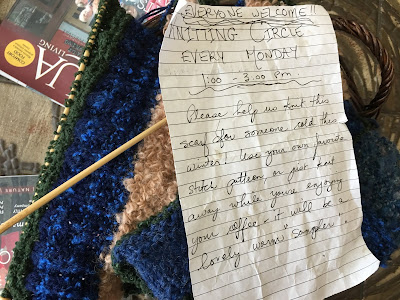 EVERYONE WELCOME!!
KNITTING CIRCLE
EVERY MONDAY
1:00 - 3:00 pm
Please help us knit this
scarf for someone cold this
winter! Use your own favorite
stitch pattern or just knit
away while you're enjoying
your coffee - it will be a
lovely warm "sampler".
JA
LIVING